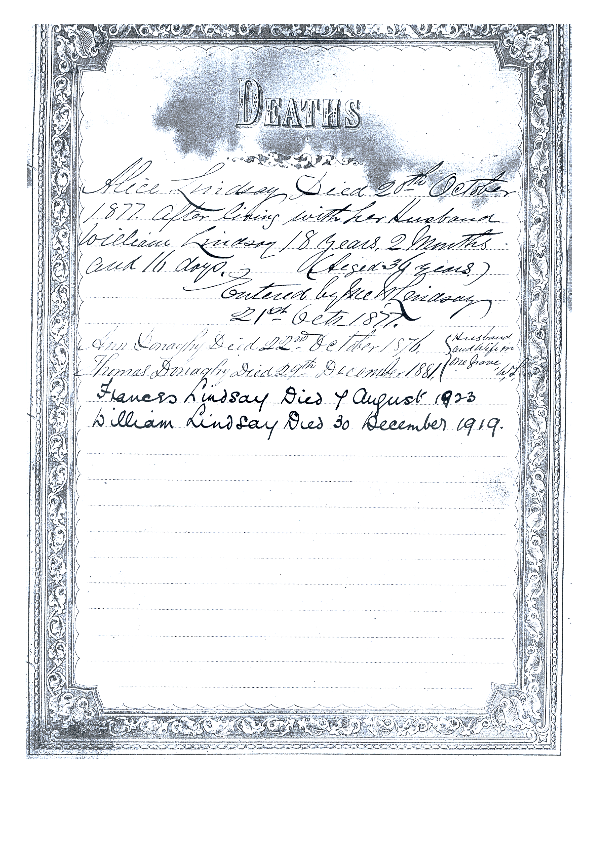 DEATHS
Alice Lindsay Died 20th October
1877. After living with her Husband
William Lindsay 18 Years, 2 Months
and 16 days. (Aged 39 years.)
Entered by me W Lindsay
21st Octr 1877.
Ann Donaghy Died 22nd October 1876
Husband
and Wife in
One Grave
Thomas Donaghy Died 29th December 1881
Frances Lindsay Died 7 August 1923
William Lindsay Died 30 December 1919.